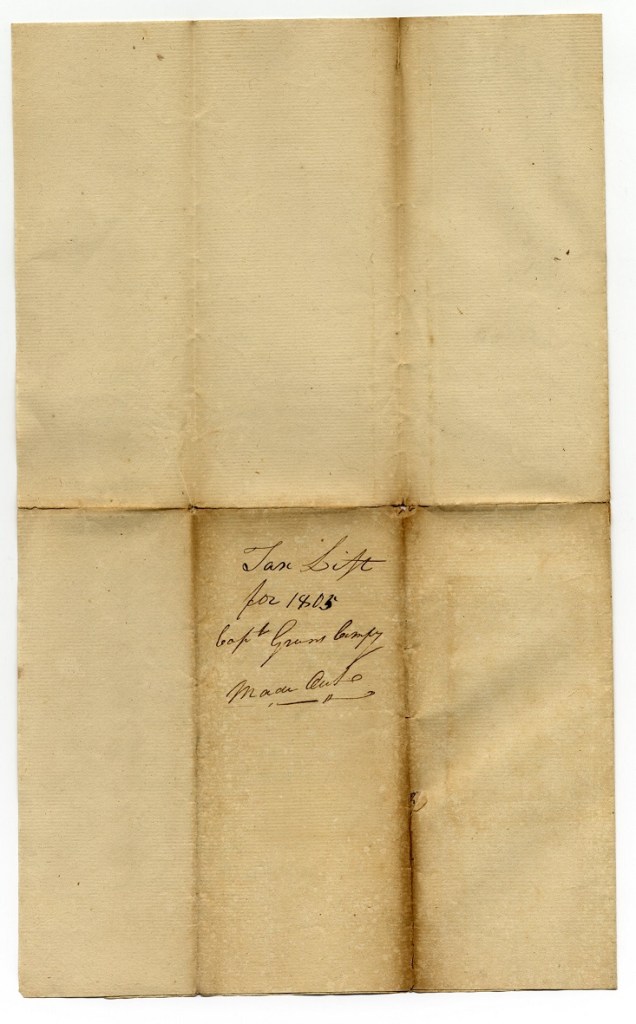 Tax List
for 1805
Capt Greens Compy
Made Out